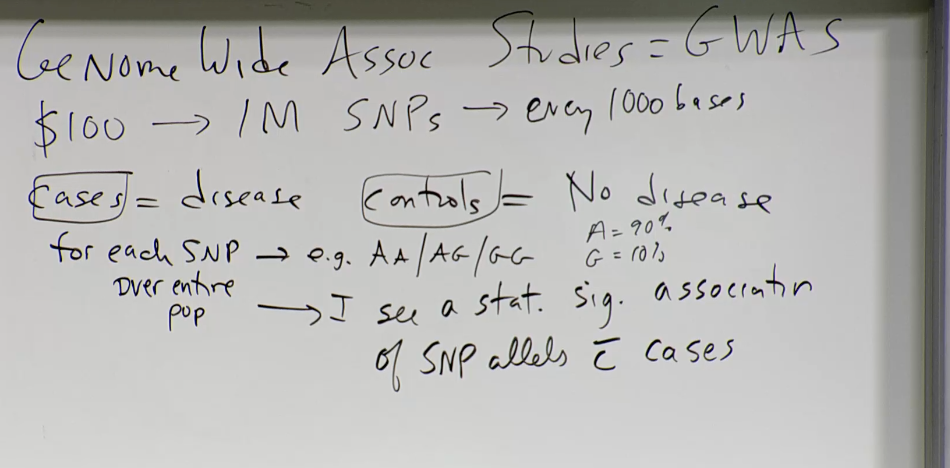 GeNome Wide Assoc Studies = GWAS
$100 → 1M SNPs → every 1000 bases
Cases = disease Controls = No disease
A = 90%
for each SNP → e.g. AA/AG/GG G = 10%
Over entire pop → I see a stat. sig. associatin
of SNP allels c̄ cases